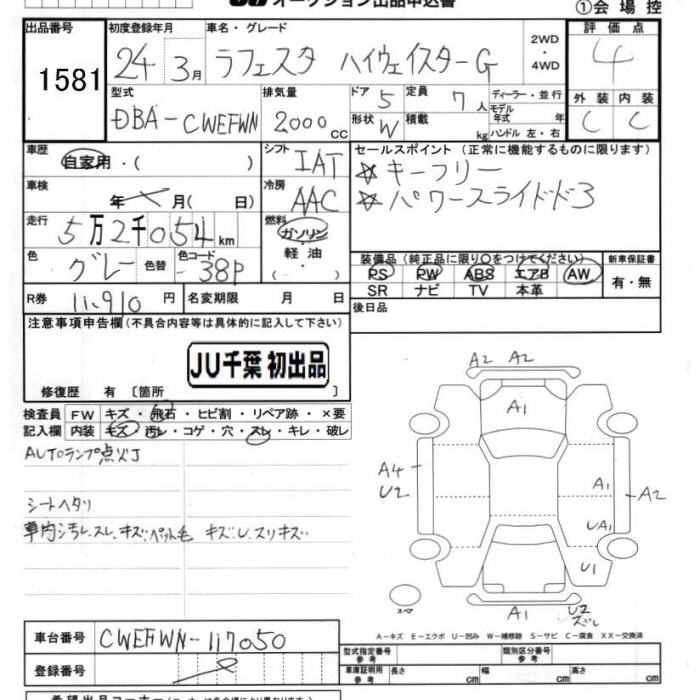 オークション出品申込書
①会場控
出品番号
1581
初度登録年月
24年3月
車名・グレード
ラフェスタ ハイウェイスターG
2WD・4WD
評価点
4
型式
DBA-CWEFWN
排気量
2000cc
ドア 5
定員 7人
形状 W
積載 kg
ディーラー・並行
モデル年式 年
ハンドル 左・右
外装 C
内装 C
車歴
自家用・( )
シフト IAT
セールスポイント(正常に機能するものに限ります)
☆キーフリー
☆パワースライドドア
車検
年 月( 日)
冷房 AAC
走行
5万2千054km
燃料
ガソリン
軽油
( )
色 グレー
色替
色コード 38P
装備品(純正品に限り○をつけてください)
PS PW ABS エアB AW
SR ナビ TV 本革
新車保証書
有・無
R券 11,910円
名変期限 月 日
後日品
注意事項申告欄(不具合内容等は具体的に記入して下さい)
JU千葉 初出品
修復歴 有〔箇所 〕
検査員記入欄
FW キズ・飛石・ヒビ割・リペア跡・×要
内装 キズ・汚レ・コゲ・穴・スレ・キレ・破レ
AUTOランプ点灯
シートヘタリ
車内汚レ、スレ、キズ、ペット毛 キズ、U、スリキズ
A2 A2
A1
A4
U2
A1
A2
UA1
U1
スペア
A1
U2
ズレ
A-キズ E-エクボ U-凹み W-補修跡 S-サビ C-腐食 XX-交換済
車台番号
CWEFWN-117050
登録番号
型式指定番号 参考
類別区分番号 参考
車庫証明用 参考
長さ cm
幅 cm
高さ cm